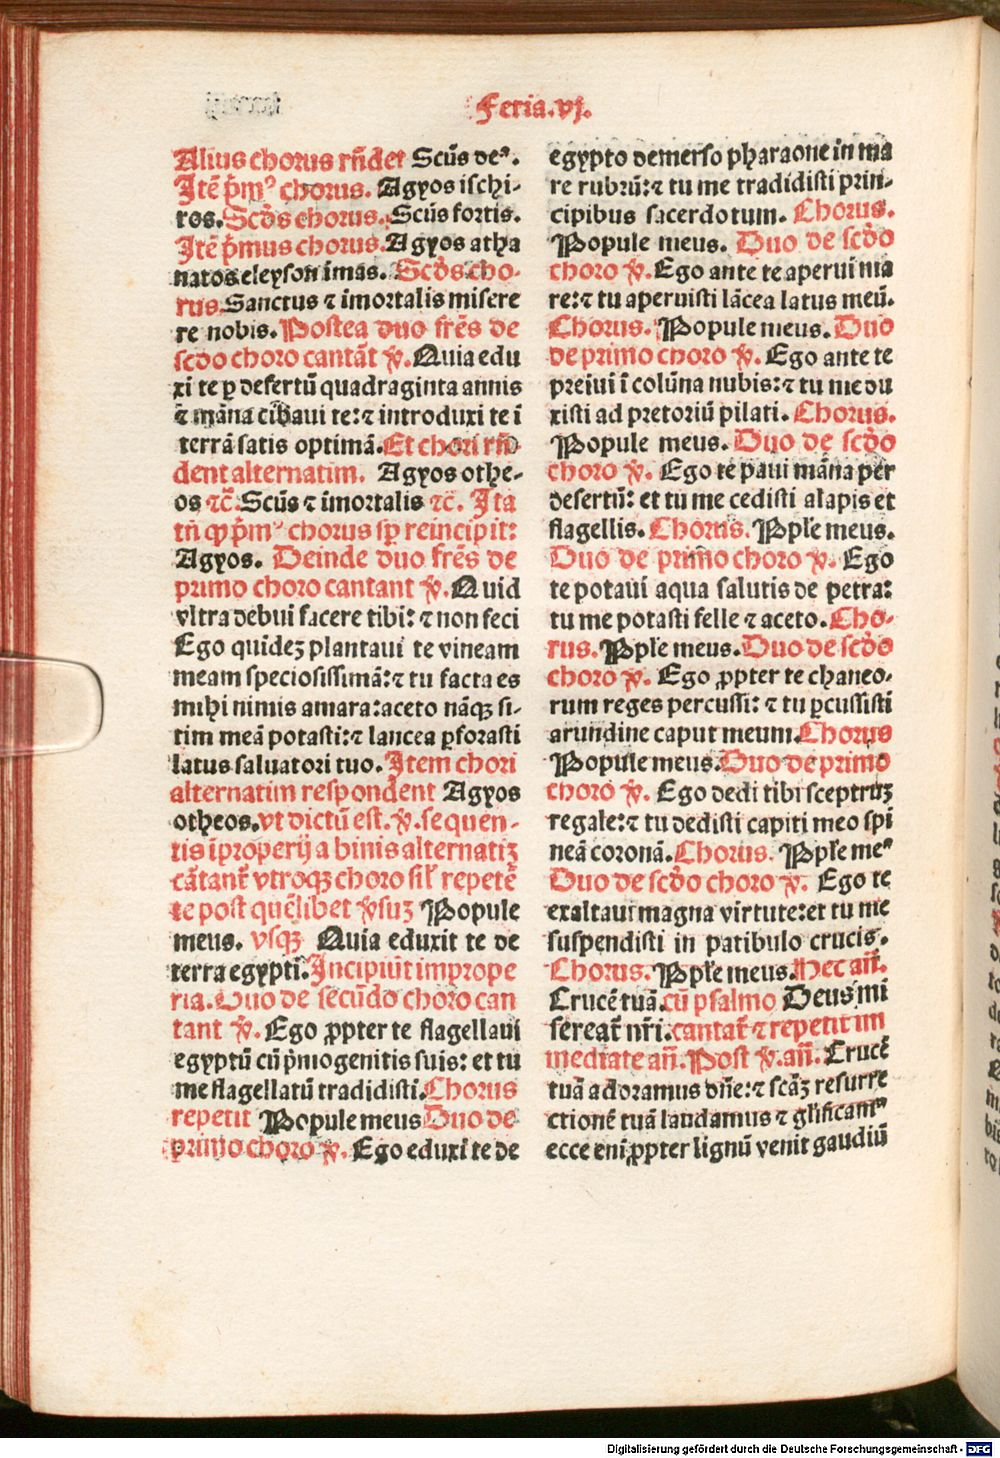 Feria.vj.
Alius chorus rñdet Scũs deꝰ.
Itẽ p̃mꝰ chorus. Agyos ischi-
ros. Scd̃s chorus. Scũs fortis.
Itẽ p̃mus chorus. Agyos atha
natos eleyson imas. Scd̃s cho-
rus. Sanctus ⁊ imortalis misere
re nobis. Postea duo fr̃es de
scd̃o choro cantãt ℣. Quia edu
xi te ꝑ desertũ quadraginta annis
⁊ mãna cibaui te: ⁊ introduxi te ĩ
terrã satis optimã. Et chori rñ
dent alternatim. Agyos othe-
os ⁊c̃. Scũs ⁊ imortalis ⁊c̃. Ita
tñ ꝙ p̃mꝰ chorus sꝑ reincipit:
Agyos. Deinde duo fr̃es de
primo choro cantant ℣. Quid
vltra debui facere tibi: ⁊ non feci
Ego quidez plantaui te vineam
meam speciosissimã: ⁊ tu facta es
mihi nimis amara: aceto nãqꝫ si-
tim meã potasti: ⁊ lancea ꝑforasti
latus saluatori tuo. Item chori
alternatim respondent Agyos
otheos. vt dictũ est. ℣. sequen-
tis ĩproperij a binis alternatiꝫ
cãtant᷑ vtroqꝫ choro sil̃ repetẽ
te post quẽlibet ℣suꝫ Popule
meus. vsqꝫ Quia eduxit te de
terra egypti. Incipiũt imprope
ria. Duo de secũdo choro can
tant ℣. Ego ꝓpter te flagellaui
egyptũ cũ p̃mogenitis suis: et tu
me flagellatũ tradidisti. Chorus
repetit Popule meus Duo de
primo choro ℣. Ego eduxi te de
egypto demerso pharaone in ma
re rubrũ: ⁊ tu me tradidisti prin-
cipibus sacerdotum. Chorus.
Popule meus. Duo de scd̃o
choro ℣. Ego ante te aperui ma
re: ⁊ tu aperuisti lãcea latus meũ.
Chorus. Popule meus. Duo
de primo choro ℣. Ego ante te
preiui ĩ colũna nubis: ⁊ tu me du
xisti ad pretoriũ pilati. Chorus.
Popule meus. Duo de scd̃o
choro ℣. Ego te paui mãna per
desertũ: et tu me cedisti alapis et
flagellis. Chorus. Pple meus.
Duo de primo choro ℣. Ego
te potaui aqua salutis de petra:
tu me potasti felle ⁊ aceto. Cho-
rus. Pple meus. Duo de scd̃o
choro ℣. Ego ꝓpter te chaneo-
rum reges percussi: ⁊ tu ꝑcussisti
arundine caput meum. Chorus
Popule meus. Duo de primo
choro ℣. Ego dedi tibi sceptruꝫ
regale: ⁊ tu dedisti capiti meo spi
neã coronã. Chorus. Pple meꝰ
Duo de scd̃o choro ℣. Ego te
exaltaui magna virtute: et tu me
suspendisti in patibulo crucis.
Chorus. Pple meus. Hec añ.
Crucẽ tuã. cũ psalmo Deus mi
sereat᷑ nr̃i. cantat᷑ ⁊ repetit im
mediate añ. Post ℣. añ. Crucẽ
tuã adoramus dñe: ⁊ scãꝫ resurre
ctionẽ tuã laudamus ⁊ glificamꝰ
ecce eni ꝓpter lignũ venit gaudiũ
Digitalisierung gefördert durch die Deutsche Forschungsgemeinschaft - DFG